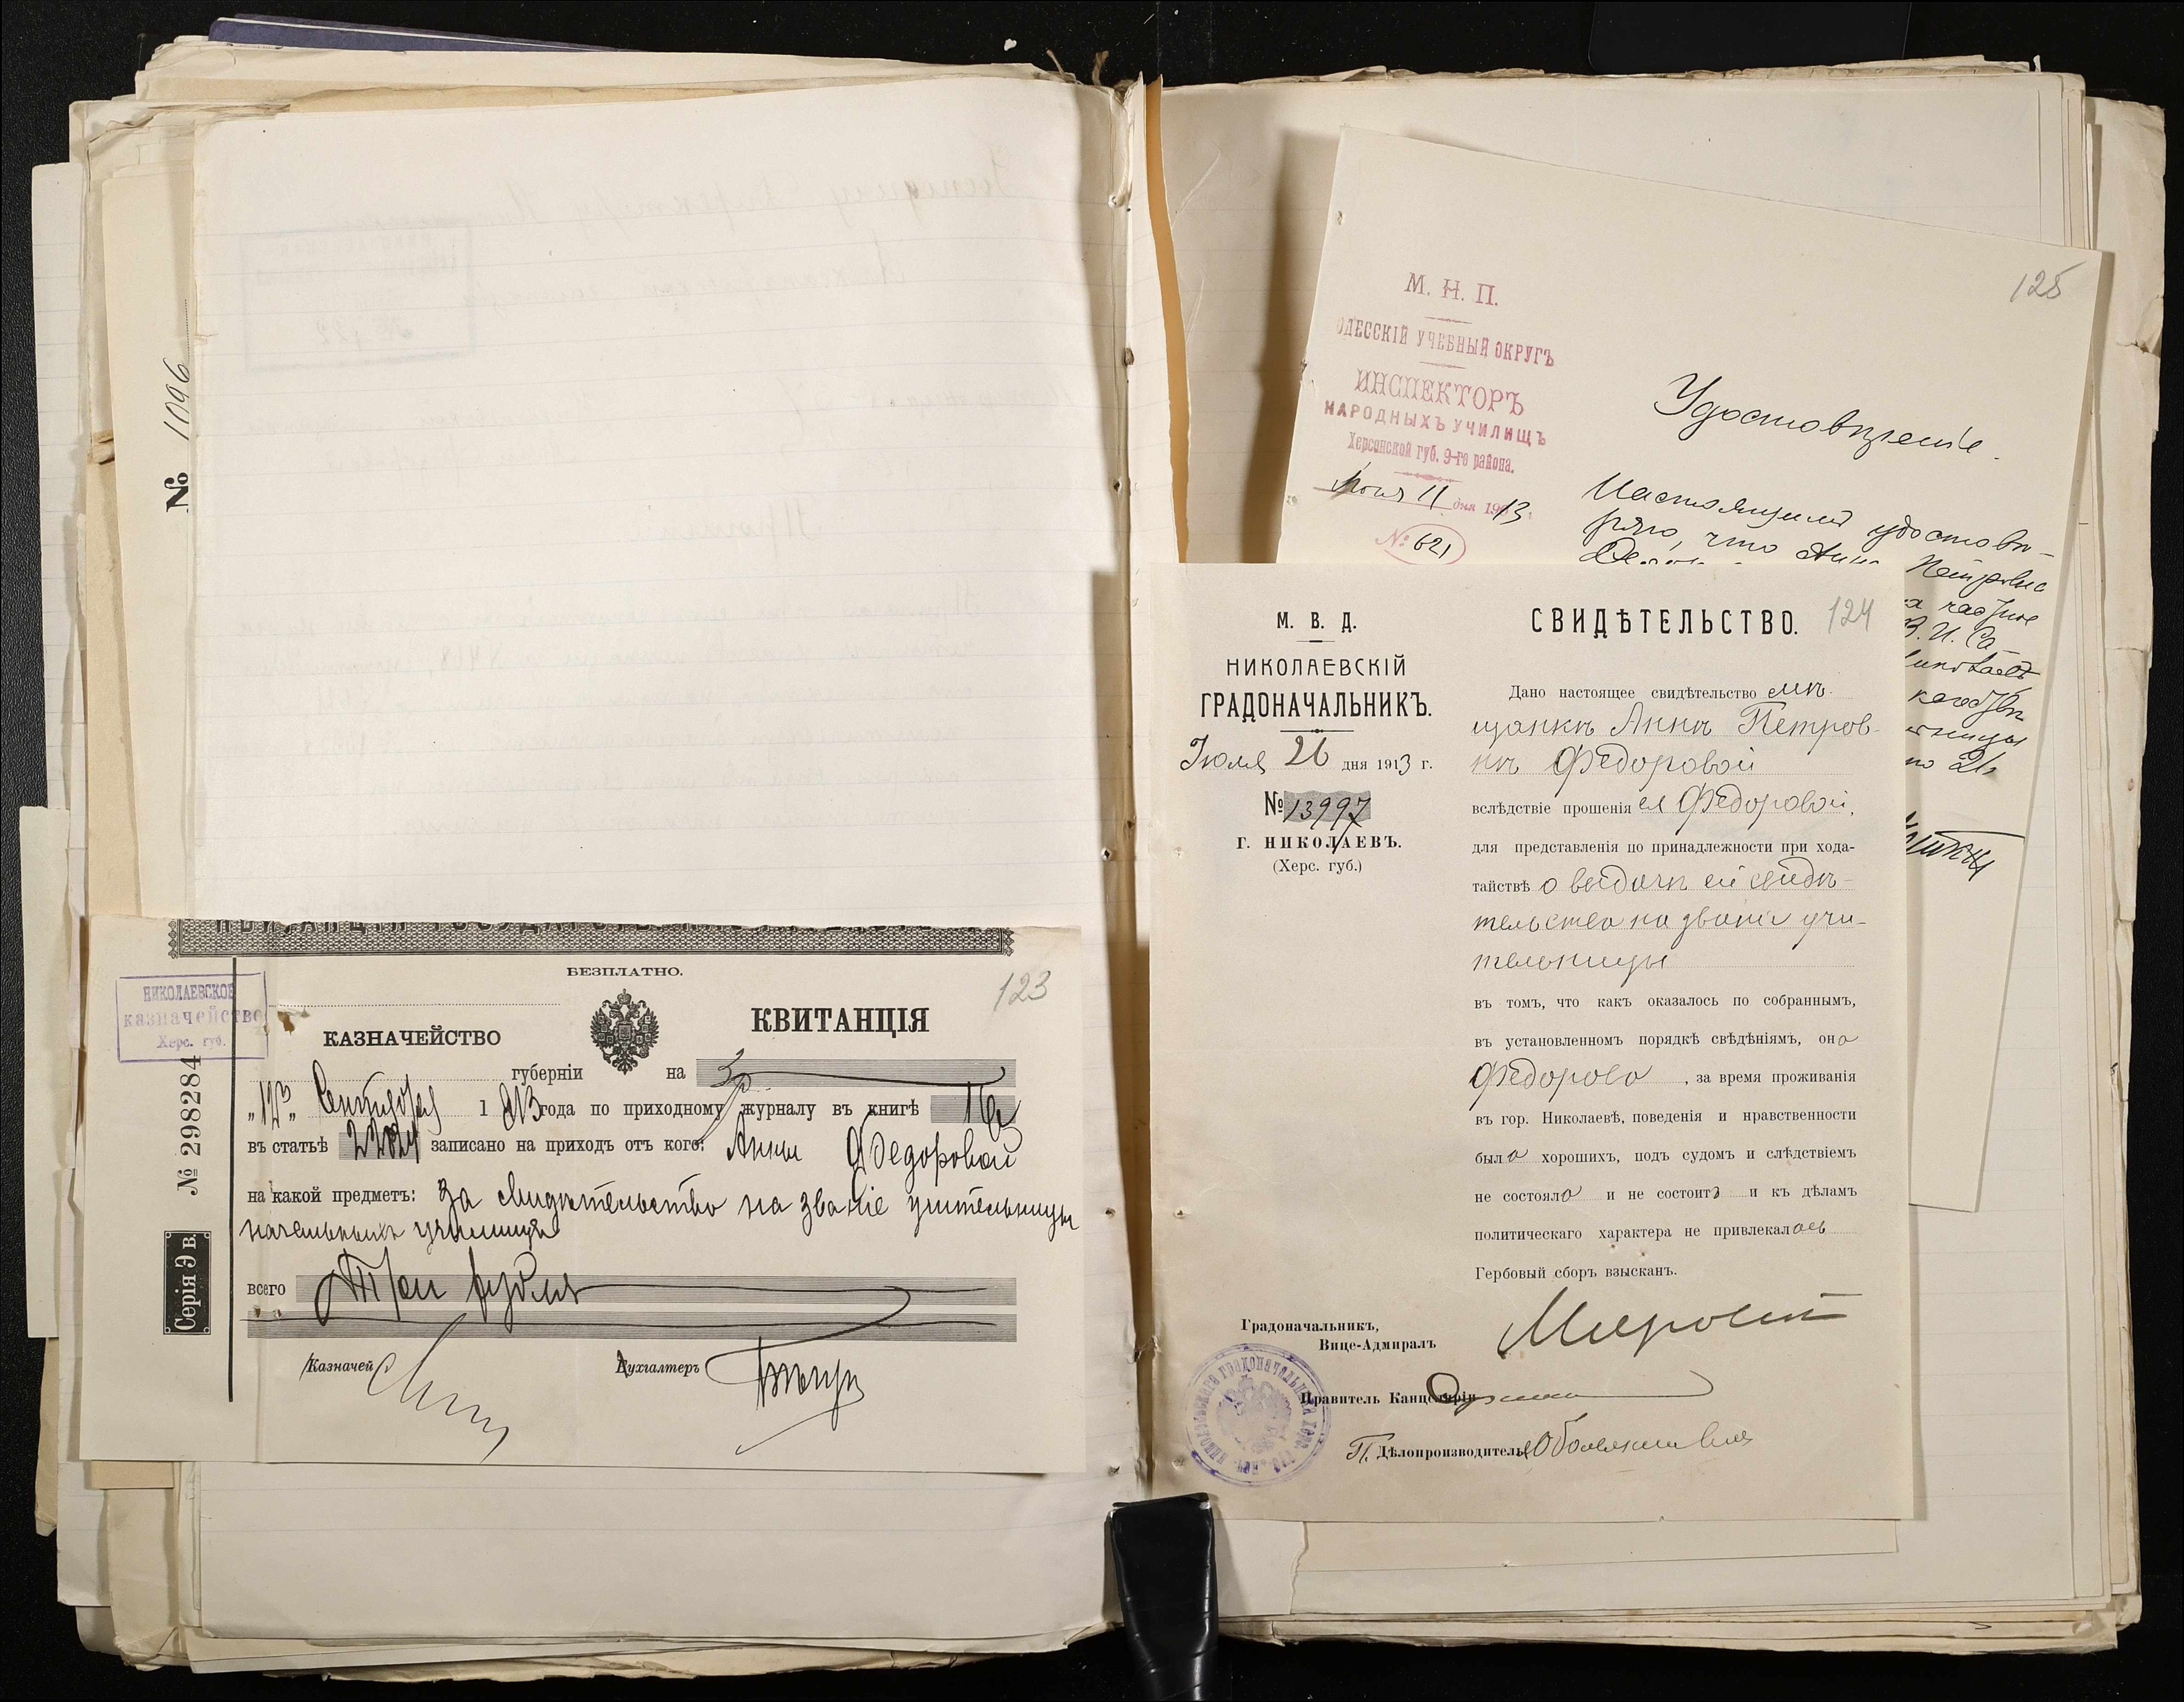 № 1096
БЕЗПЛАТНО.
123
НИКОЛАЕВСКОЕ
казначейство
Херс. губ.
КАЗНАЧЕЙСТВО
КВИТАНЦІЯ
губерніи
на 3 р.
"12" Сентября 1913 года по приходному журналу въ книгѣ
въ статьѣ записано на приходъ отъ кого: Анны Ѳедоровой
на какой предметъ: За свидѣтельство на званіе учительницы
начальныхъ училищъ
всего Три рубля
Казначей
Бухгалтеръ
№ 298284
Серія Э в.
125
М. Н. П.
ОДЕССКІЙ УЧЕБНЫЙ ОКРУГЪ
ИНСПЕКТОРЪ
НАРОДНЫХЪ УЧИЛИЩЪ
Херсонской губ. 9-го района.
11 дня 1913
№ 621
Удостовѣреніе.
Настоящимъ удостовѣ-
ряю, что Анна Петровна
В. И.
М. В. Д.
НИКОЛАЕВСКІЙ
ГРАДОНАЧАЛЬНИКЪ.
Іюля 26 дня 1913 г.
№ 13997
Г. НИКОЛАЕВЪ.
(Херс. губ.)
СВИДѢТЕЛЬСТВО.
124
Дано настоящее свидѣтельство мѣ-
щанкѣ Аннѣ Петров-
нѣ Ѳедоровой
вслѣдствіе прошенія ея Ѳедоровой,
для представленія по принадлежности при хода-
тайствѣ о выдачѣ ей свидѣ-
тельства на званіе учи-
тельницы
въ томъ, что какъ оказалось по собраннымъ,
въ установленномъ порядкѣ свѣдѣніямъ, она
Ѳедорова, за время проживанія
въ гор. Николаевѣ, поведенія и нравственности
была хорошихъ, подъ судомъ и слѣдствіемъ
не состояла и не состоитъ и къ дѣламъ
политическаго характера не привлекалась
Гербовый сборъ взысканъ.
Градоначальникъ,
Вице-Адмиралъ
Правитель Канцеляріи
П. Дѣлопроизводитель